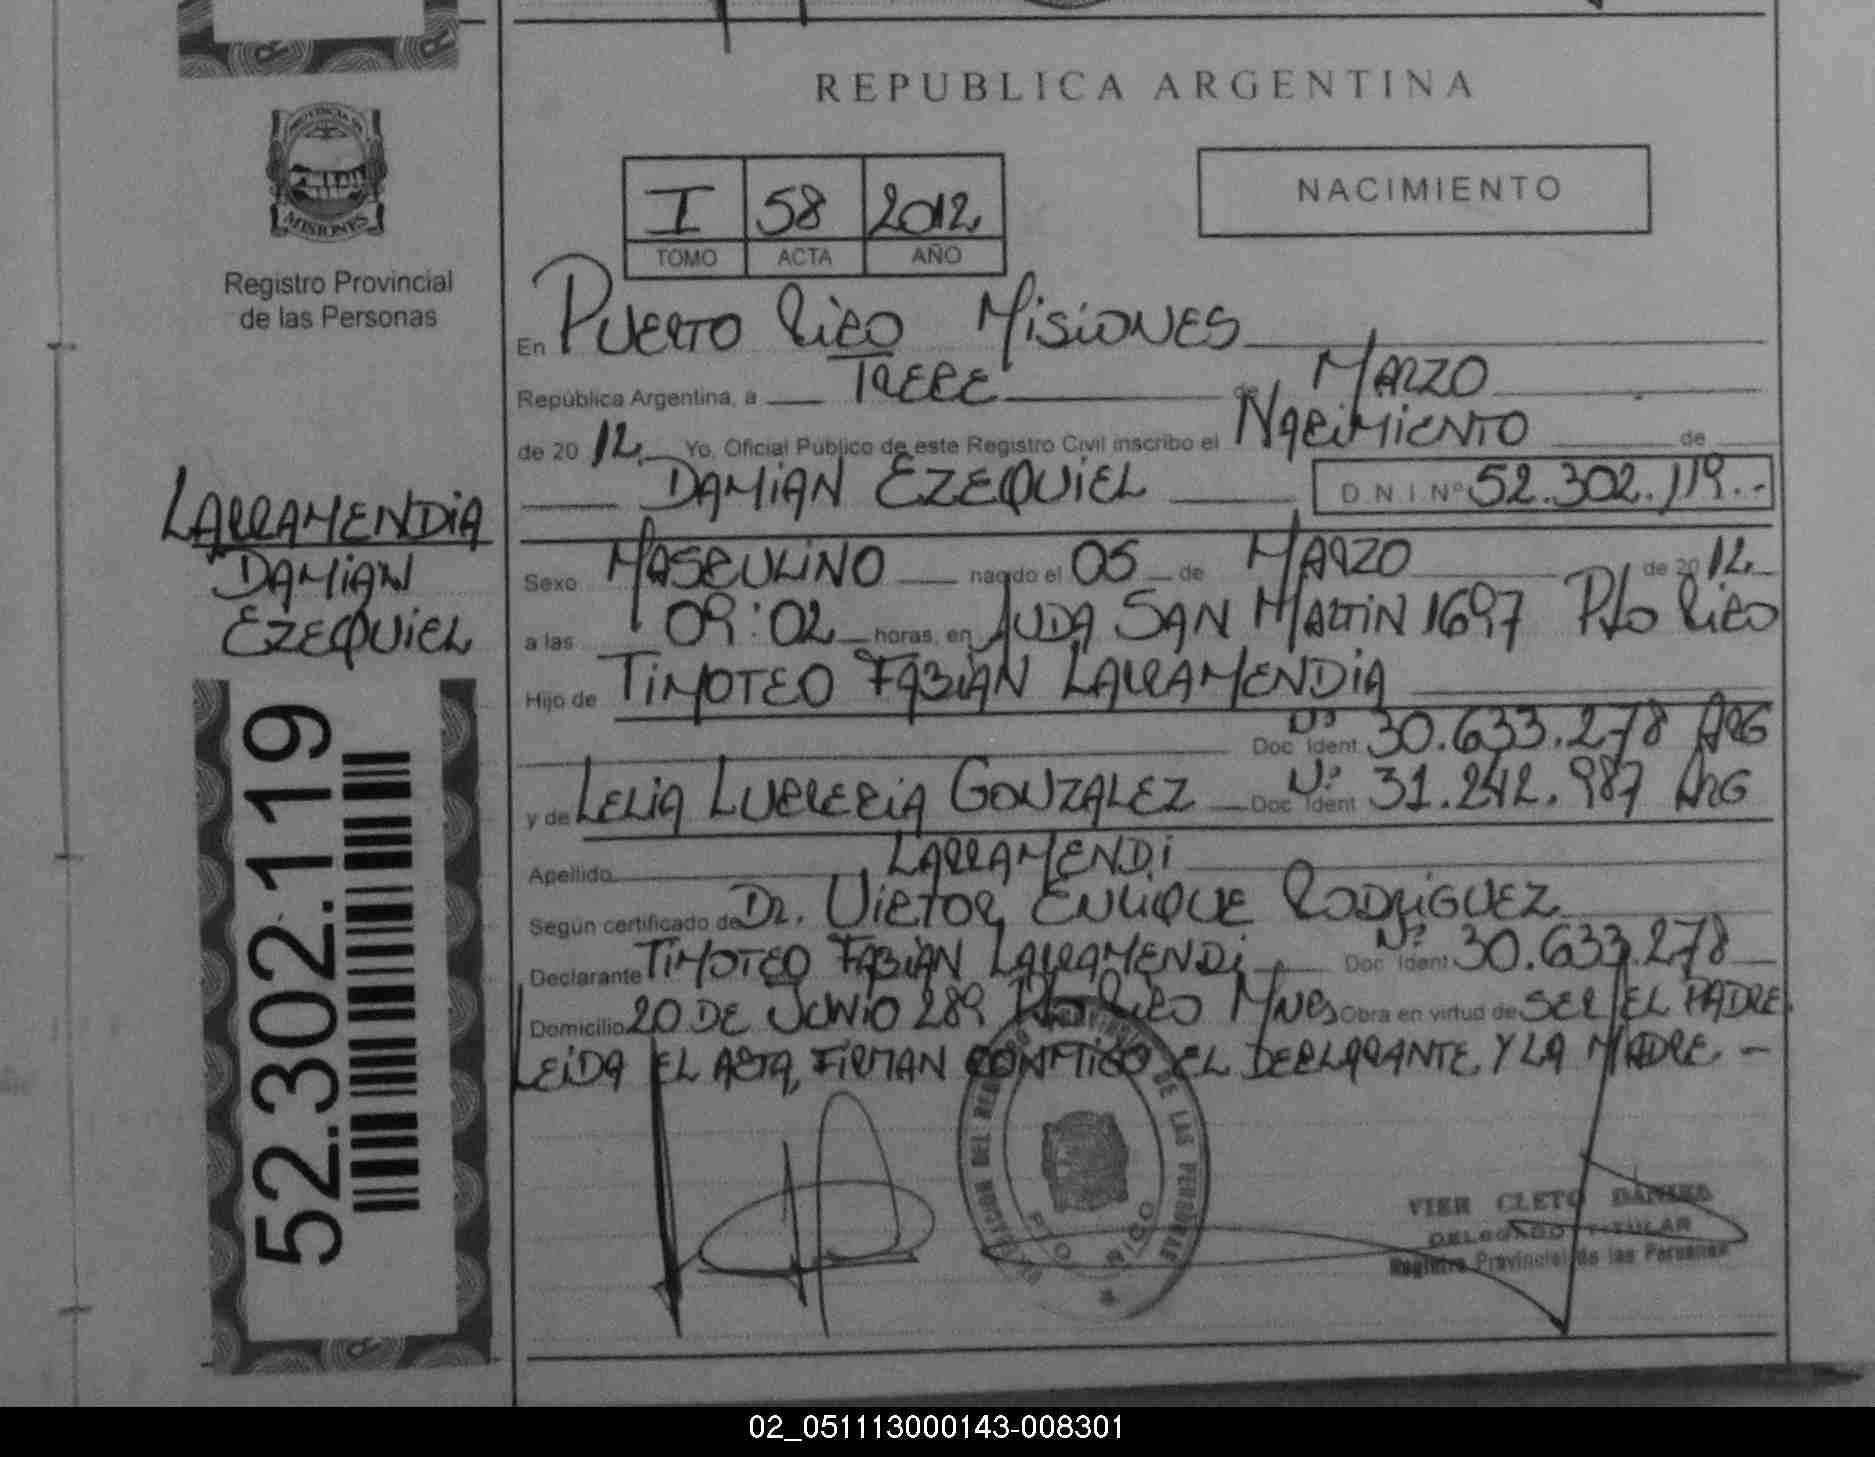 REPUBLICA ARGENTINA
PROVINCIA DE
MISIONES
Registro Provincial
de las Personas
I 58 2012
TOMO ACTA AÑO
NACIMIENTO
En PUERTO RICO MISIONES
República Argentina, a TRECE de MARZO
de 20 12 Yo, Oficial Público de este Registro Civil inscribo el NACIMIENTO de
DAMIAN EZEQUIEL D.N.I. Nº 52.302.119.-
LARRAMENDIA
DAMIAN
EZEQUIEL
Sexo MASCULINO nacido el 05 de MARZO de 20 12
a las 09:02 horas, en AVDA SAN MARTIN 1697 Pto RICO
Hijo de TIMOTEO FABIAN LARRAMENDIA
Doc Ident Nº 30.633.278 ARG
y de LELIA LUCRECIA GONZALEZ Doc Ident Nº 31.242.987 ARG
Apellido LARRAMENDI
Según certificado de DR. VICTOR ENRIQUE RODRIGUEZ
Declarante TIMOTEO FABIAN LARRAMENDI Doc Ident Nº 30.633.278
Domicilio 20 DE JUNIO 289 Pto RICO MNES Obra en virtud de SER EL PADRE.
LEIDA EL ACTA, FIRMAN CONMIGO EL DECLARANTE Y LA MADRE. -
52.302.119
DEL DE LAS PERSONAS
PTO RICO
VIER CLETO
DELEGADO TITULAR
Registro Provincial de las Personas
02_051113000143-008301